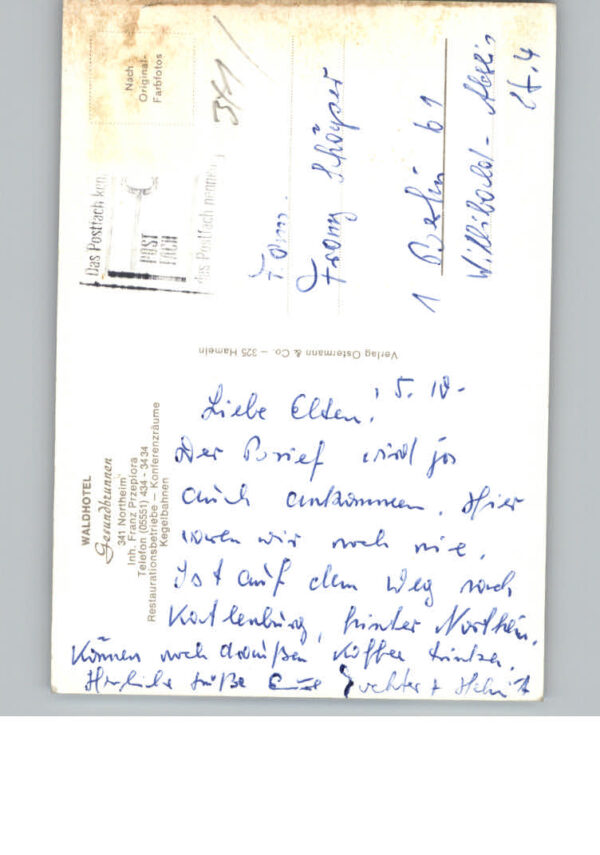 WALDHOTEL
Gesundbrunnen
341 Northeim
Inh. Franz Przepiora
Telefon (05551) 434 - 3434
Restaurationsbetriebe – Konferenzräume
Kegelbahnen
5. 10.
Liebe Eltern!
Der Brief wird ja
auch ankommen. Hier
waren wir noch nie.
Ist auf dem Weg nach
Katlenburg, hinter Northeim.
Können noch draußen Kaffee trinken.
Herzliche Grüße Eure Tochter +
Verlag Ostermann & Co. – 325 Hameln
Nach
Original-
Farbfotos
341
Das Postfach
POST
FACH
das Postfach nennen
Fam.
Franz
1 Berlin 61
Willibald-Alexis